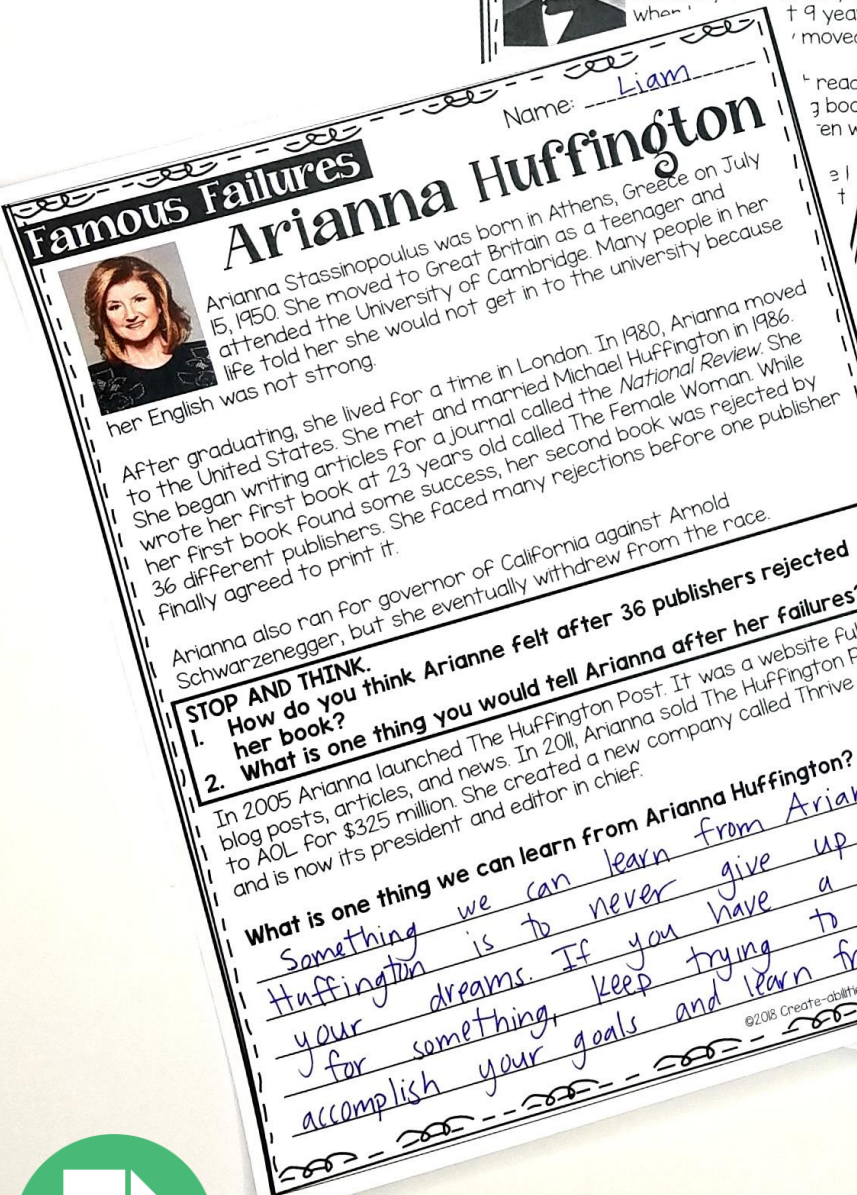 when
t 9 yea
moved
read
g boo
en w
Name: Liam
Famous Failures
Arianna Huffington
Arianna Stassinopoulus was born in Athens, Greece on July
15, 1950. She moved to Great Britain as a teenager and
attended the University of Cambridge. Many people in her
life told her she would not get in to the university because
her English was not strong.
After graduating, she lived for a time in London. In 1980, Arianna moved
to the United States. She met and married Michael Huffington in 1986.
She began writing articles for a journal called the National Review. She
wrote her first book at 23 years old called The Female Woman. While
her first book found some success, her second book was rejected by
36 different publishers. She faced many rejections before one publisher
finally agreed to print it.
Arianna also ran for governor of California against Arnold
Schwarzenegger, but she eventually withdrew from the race.
STOP AND THINK.
1. How do you think Arianne felt after 36 publishers rejected
her book?
2. What is one thing you would tell Arianna after her failures?
In 2005 Arianna launched The Huffington Post. It was a website ful
blog posts, articles, and news. In 2011, Arianna sold The Huffington P
to AOL for $325 million. She created a new company called Thrive
and is now its president and editor in chief.
What is one thing we can learn from Arianna Huffington?
Something we can learn from Arian
Huffington is to never give up
your dreams. If you have a
for something, keep trying to
accomplish your goals and learn fr
©2018 Create-abilitie